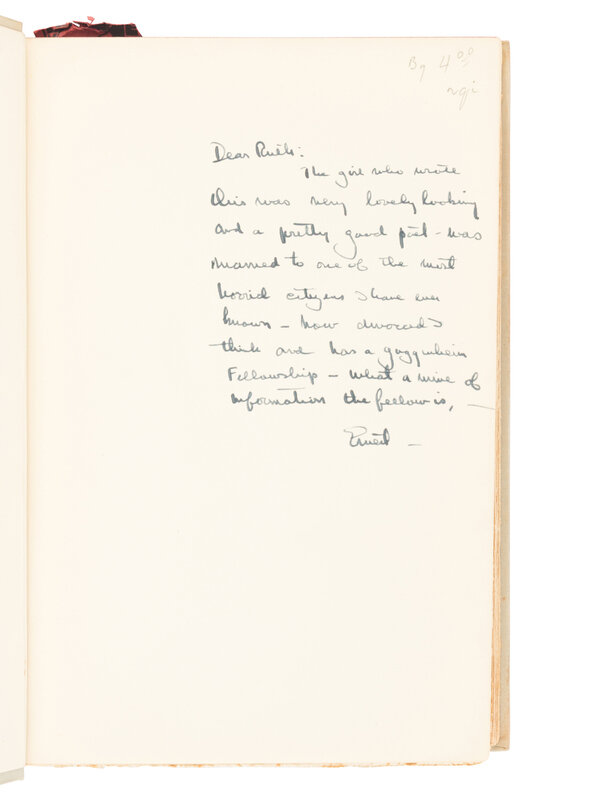 Bg 4.00
Dear Ruth:
The girl who wrote
this was very lovely looking
and a pretty good poet - was
married to one of the most
horrid citizens I have ever
known - now divorced I
think and has a guggenheim
Fellowship - What a mine of
information the fellow is, -
Ernest -